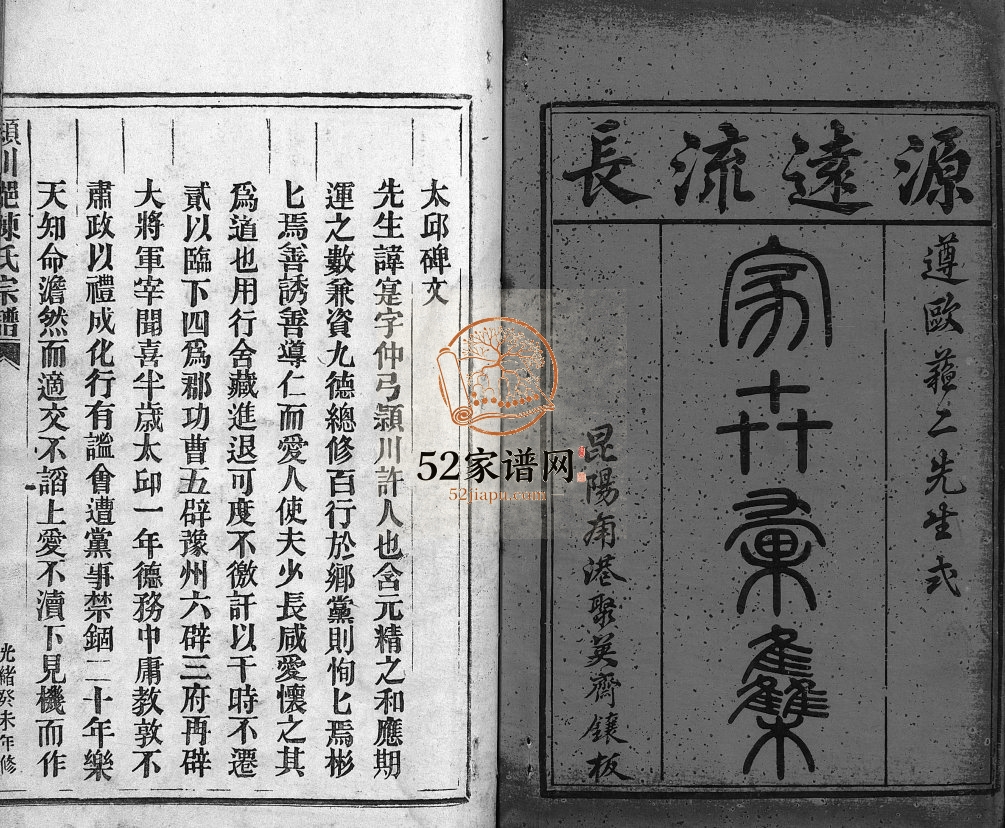 源遠流長
遵歐蘓二先生式
家世彙集
昆陽南港聚英齋鑲板
太邱碑文
先生諱寔字仲弓潁川許人也含元精之和應期
運之數兼資九德總修百行於鄉黨則恂匕焉彬
匕焉善誘善導仁而愛人使夫少長咸愛懷之其
爲道也用行舍藏進退可度不徼訐以干時不遷
貳以臨下四爲郡功曹五辟豫州六辟三府再辟
大將軍宰聞喜半歲太邱一年德務中庸教敦不
肅政以禮成化行有謐會遭黨事禁錮二十年樂
天知命澹然而適交不謟上愛不瀆下見機而作
潁川陳氏宗譜
光緒癸未年修
52家谱网
52jiapu.com